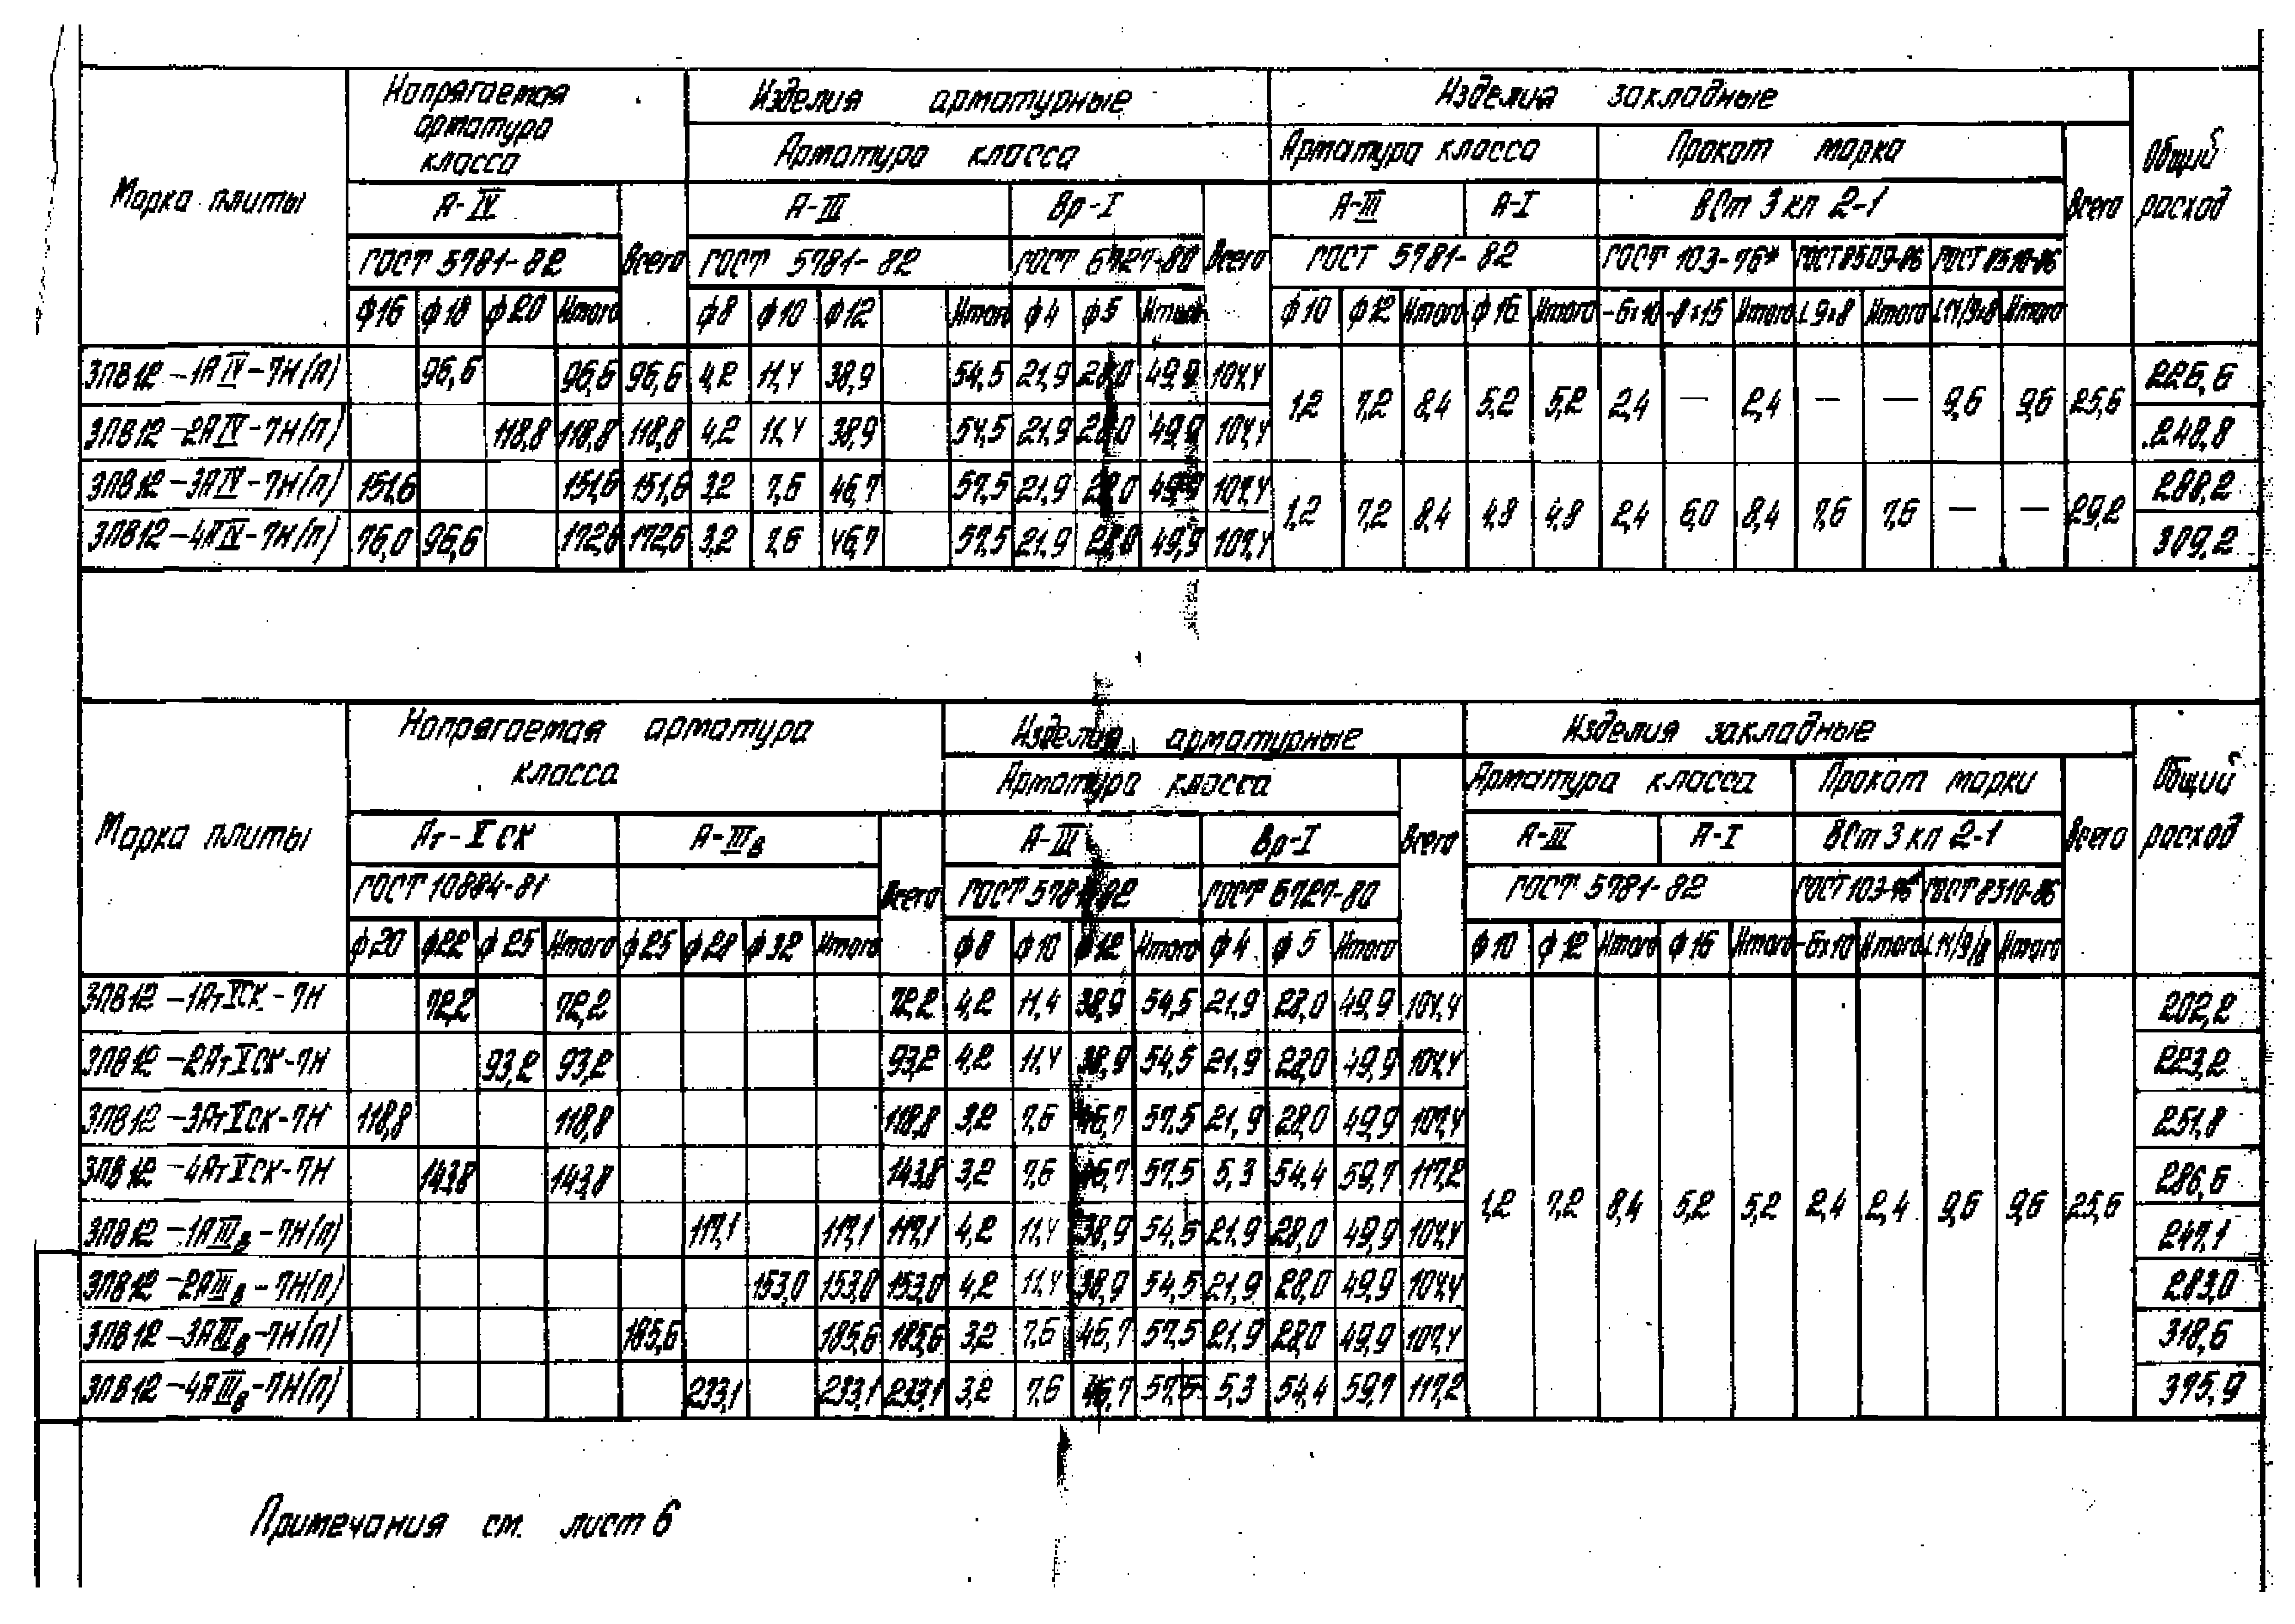 Марка плиты | Напрягаемая арматура класса | Изделия арматурные | Изделия закладные | Общий расход
Арматура класса | Арматура класса | Прокат марка
А-IV | Всего | А-III | Вр-I | Всего | А-III | А-I | ВСт 3 кп 2-1 | Всего
ГОСТ 5781-82 | ГОСТ 5781-82 | ГОСТ 6727-80 | ГОСТ 5781-82 | ГОСТ 103-76* | ГОСТ 8509-86 | ГОСТ 8510-86
ф16 | ф18 | ф20 | Итого | ф8 | ф10 | ф12 | Итого | ф4 | ф5 | Итого | ф10 | ф12 | Итого | ф16 | Итого | -6×10 | -8×15 | Итого | L9×8 | Итого | L14/9×8 | Итого
3ПВ12-1АIV-7Н(П) | 96,6 | 96,6 | 96,6 | 4,2 | 11,4 | 38,9 | 54,5 | 21,9 | 28,0 | 49,9 | 104,4 | 1,2 | 7,2 | 8,4 | 5,2 | 5,2 | 2,4 | — | 2,4 | — | — | 9,6 | 9,6 | 25,6 | 226,6
3ПВ12-2АIV-7Н(П) | 118,8 | 118,8 | 118,8 | 4,2 | 11,4 | 38,9 | 54,5 | 21,9 | 28,0 | 49,9 | 104,4 | 248,8
3ПВ12-3АIV-7Н(П) | 151,6 | 151,6 | 151,6 | 3,2 | 7,6 | 46,7 | 57,5 | 21,9 | 28,0 | 49,9 | 107,4 | 1,2 | 7,2 | 8,4 | 4,8 | 4,8 | 2,4 | 6,0 | 8,4 | 7,6 | 7,6 | — | — | 29,2 | 288,2
3ПВ12-4АIV-7Н(П) | 76,0 | 96,6 | 172,6 | 172,6 | 3,2 | 7,6 | 46,7 | 57,5 | 21,9 | 28,0 | 49,9 | 107,4 | 309,2
Марка плиты | Напрягаемая арматура класса | Изделия арматурные | Изделия закладные | Общий расход
Арматура класса | Всего | Арматура класса | Прокат марки | Всего
Ат-V СК | А-IIIв | Всего | А-III | Вр-I | А-III | А-I | ВСт 3 кп 2-1
ГОСТ 10884-81 | ГОСТ 5781-82 | ГОСТ 6727-80 | ГОСТ 5781-82 | ГОСТ 103-76* | ГОСТ 8510-86
ф20 | ф22 | ф25 | Итого | ф25 | ф28 | ф32 | Итого | ф8 | ф10 | ф12 | Итого | ф4 | ф5 | Итого | ф10 | ф12 | Итого | ф16 | Итого | -6×10 | Итого | L14/9/8 | Итого
3ПВ12-1АтVСК-7Н | 72,2 | 72,2 | 72,2 | 4,2 | 11,4 | 38,9 | 54,5 | 21,9 | 28,0 | 49,9 | 104,4 | 202,2
3ПВ12-2АтVСК-7Н | 93,2 | 93,2 | 93,2 | 4,2 | 11,4 | 38,9 | 54,5 | 21,9 | 28,0 | 49,9 | 104,4 | 223,2
3ПВ12-3АтVСК-7Н | 118,8 | 118,8 | 118,8 | 3,2 | 7,6 | 46,7 | 57,5 | 21,9 | 28,0 | 49,9 | 107,4 | 251,8
3ПВ12-4АтVСК-7Н | 143,8 | 143,8 | 143,8 | 3,2 | 7,6 | 46,7 | 57,5 | 5,3 | 54,4 | 59,7 | 117,2 | 286,6
3ПВ12-1АIIIв-7Н(П) | 117,1 | 117,1 | 117,1 | 4,2 | 11,4 | 38,9 | 54,5 | 21,9 | 28,0 | 49,9 | 104,4 | 1,2 | 7,2 | 8,4 | 5,2 | 5,2 | 2,4 | 2,4 | 9,6 | 9,6 | 25,6 | 247,1
3ПВ12-2АIIIв-7Н(П) | 153,0 | 153,0 | 153,0 | 4,2 | 11,4 | 38,9 | 54,5 | 21,9 | 28,0 | 49,9 | 104,4 | 283,0
3ПВ12-3АIIIв-7Н(П) | 185,6 | 185,6 | 185,6 | 3,2 | 7,6 | 46,7 | 57,5 | 21,9 | 28,0 | 49,9 | 107,4 | 318,6
3ПВ12-4АIIIв-7Н(П) | 233,1 | 233,1 | 233,1 | 3,2 | 7,6 | 46,7 | 57,5 | 5,3 | 54,4 | 59,7 | 117,2 | 375,9
Примечания см. лист 6